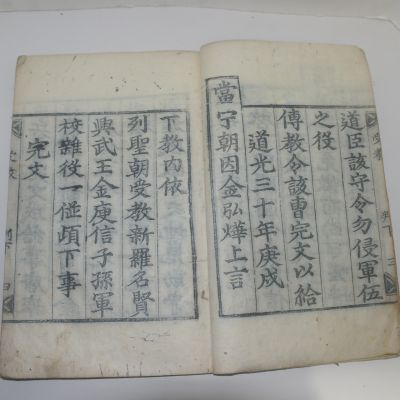 道臣該守令勿侵軍伍
之役
傳教令該曹完文以給
道光三十年庚戌
當宁朝因金弘燁上言
下教內依
列聖朝受教新羅名賢
興武王金庾信子孫軍
校雜役一並頉下事
完文